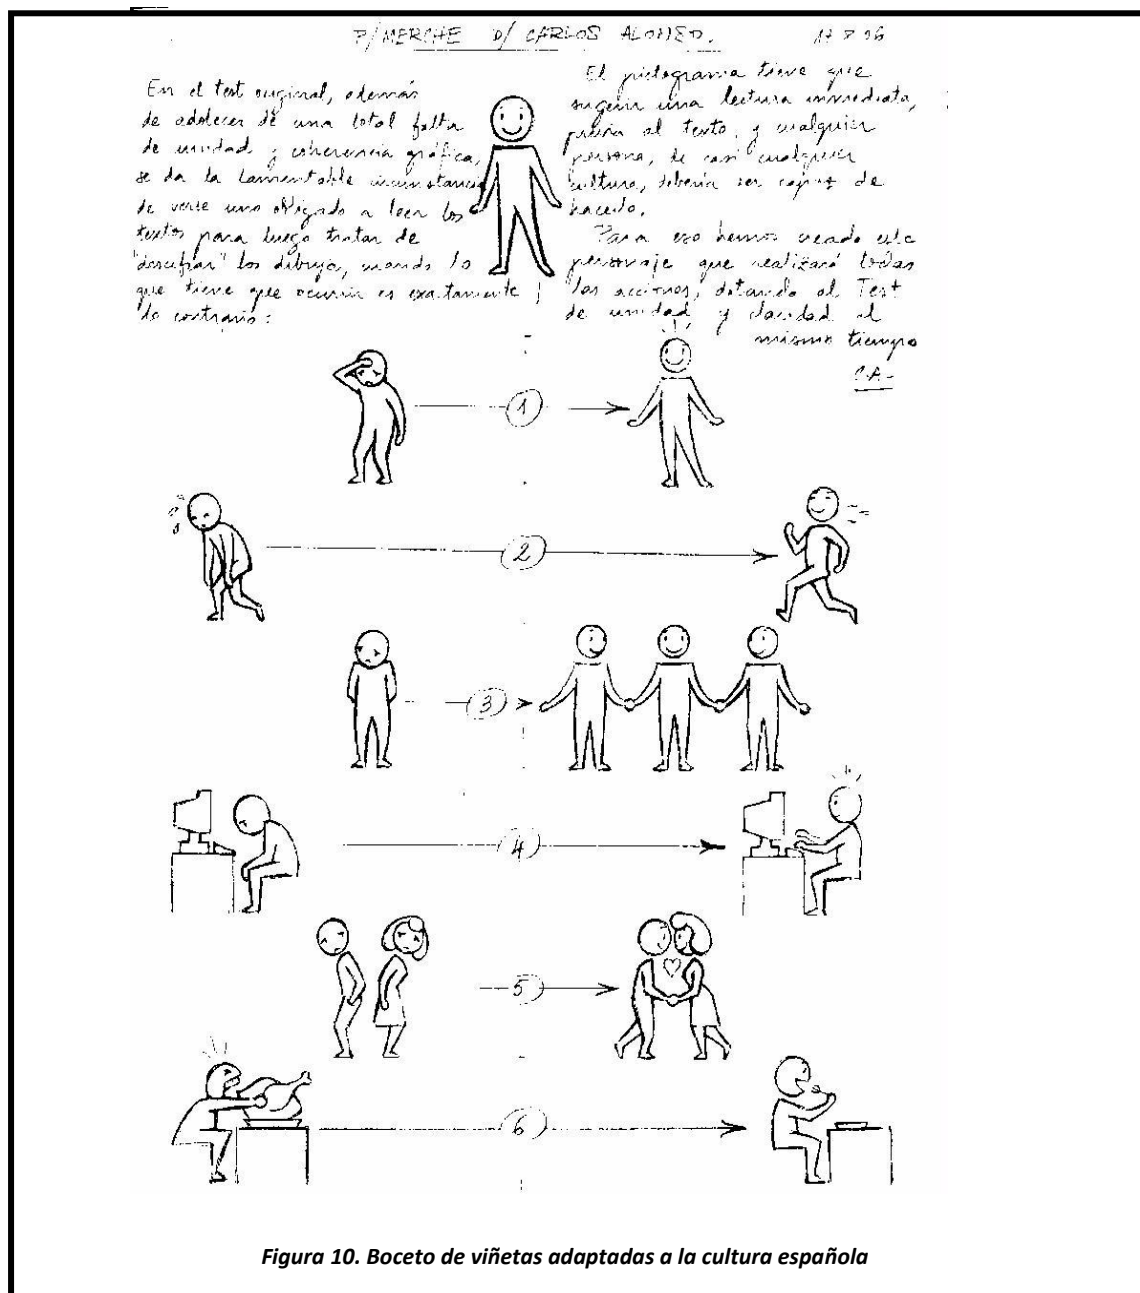 P/MERCHE D/ CARLOS ALONSO.
En el test original, además
de adolecer de una total falta
de unidad y coherencia gráfica,
se da la lamentable circunstancia
de verse uno obligado a leer los
textos para luego tratar de
"descifrar" los dibujos, cuando lo
que tiene que ocurrir es exactamente
lo contrario:
El pictograma tiene que
sugerir una lectura inmediata,
previa al texto, y cualquier
persona, de casi cualquier
cultura, debería ser capaz de
hacerlo.
Para eso hemos creado este
personaje que realizará todas
las acciones, dotando al Test
de unidad y claridad al
mismo tiempo
C.A.-
1
2
3
4
5
6
Figura 10. Boceto de viñetas adaptadas a la cultura española